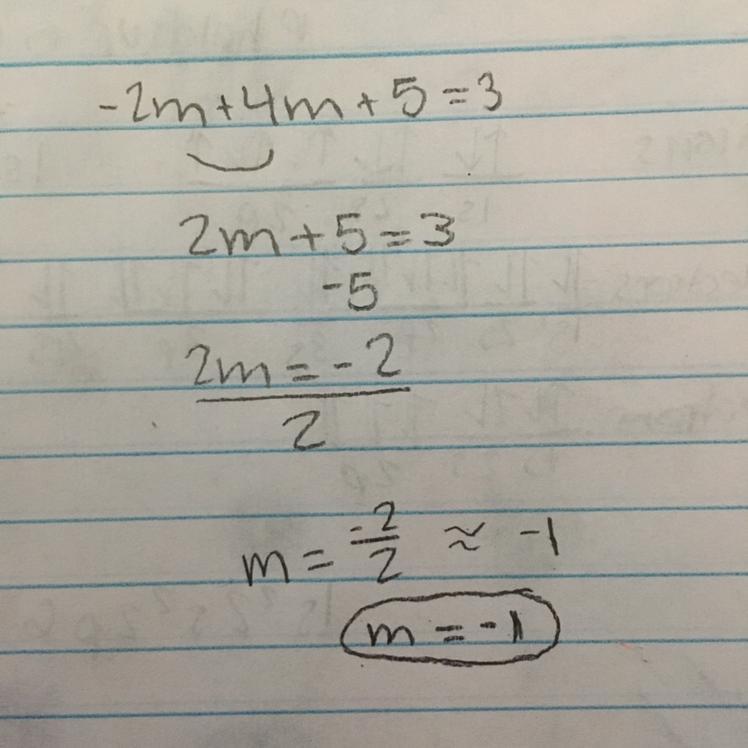 -2m+4m+5=3
2m+5=3
-5
2m=-2
2
m = -2/2 ≈ -1
m = -1